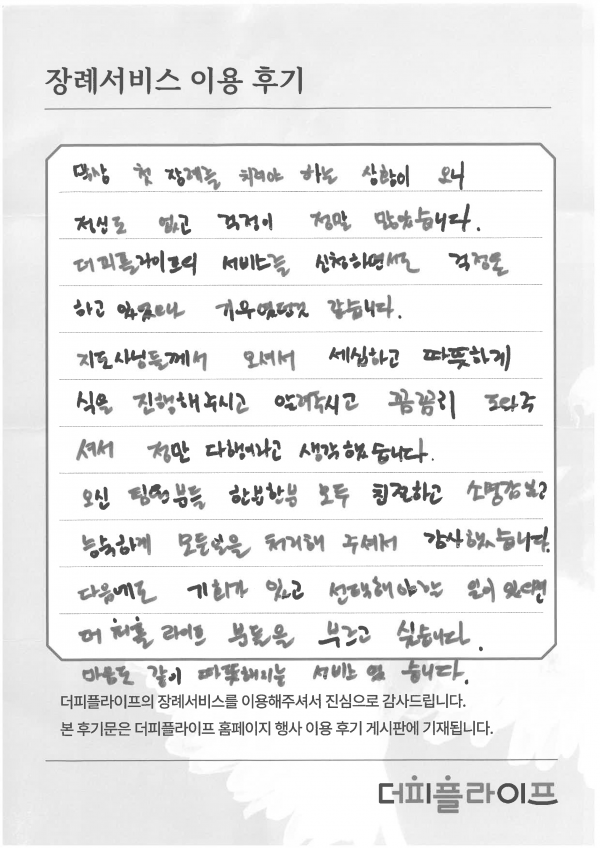 장례서비스 이용 후기
막상 첫 장례를 치러야 하는 상황이 오니
정신도 없고 걱정이 정말 많았습니다.
더피플라이프의 서비스를 신청하면서도 걱정을
하고 있었으나 기우였던것 같습니다.
지도사님들께서 오셔서 세심하고 따뜻하게
식을 진행해주시고 알려주시고 꼼꼼히 도와주
셔서 정말 다행이라고 생각했습니다.
오신 팀원분들 한분한분 모두 친절하고 소명감있고
능숙하게 모든일을 처리해 주셔서 감사했습니다.
다음에도 기회가 있고 선택해야하는 일이 있다면
더 피플 라이프 분들을 부르고 싶습니다.
마음도 같이 따뜻해지는 서비스 였 습니다.
더피플라이프의 장례서비스를 이용해주셔서 진심으로 감사드립니다.
본 후기문은 더피플라이프 홈페이지 행사 이용 후기 게시판에 기재됩니다.
더피플라이프